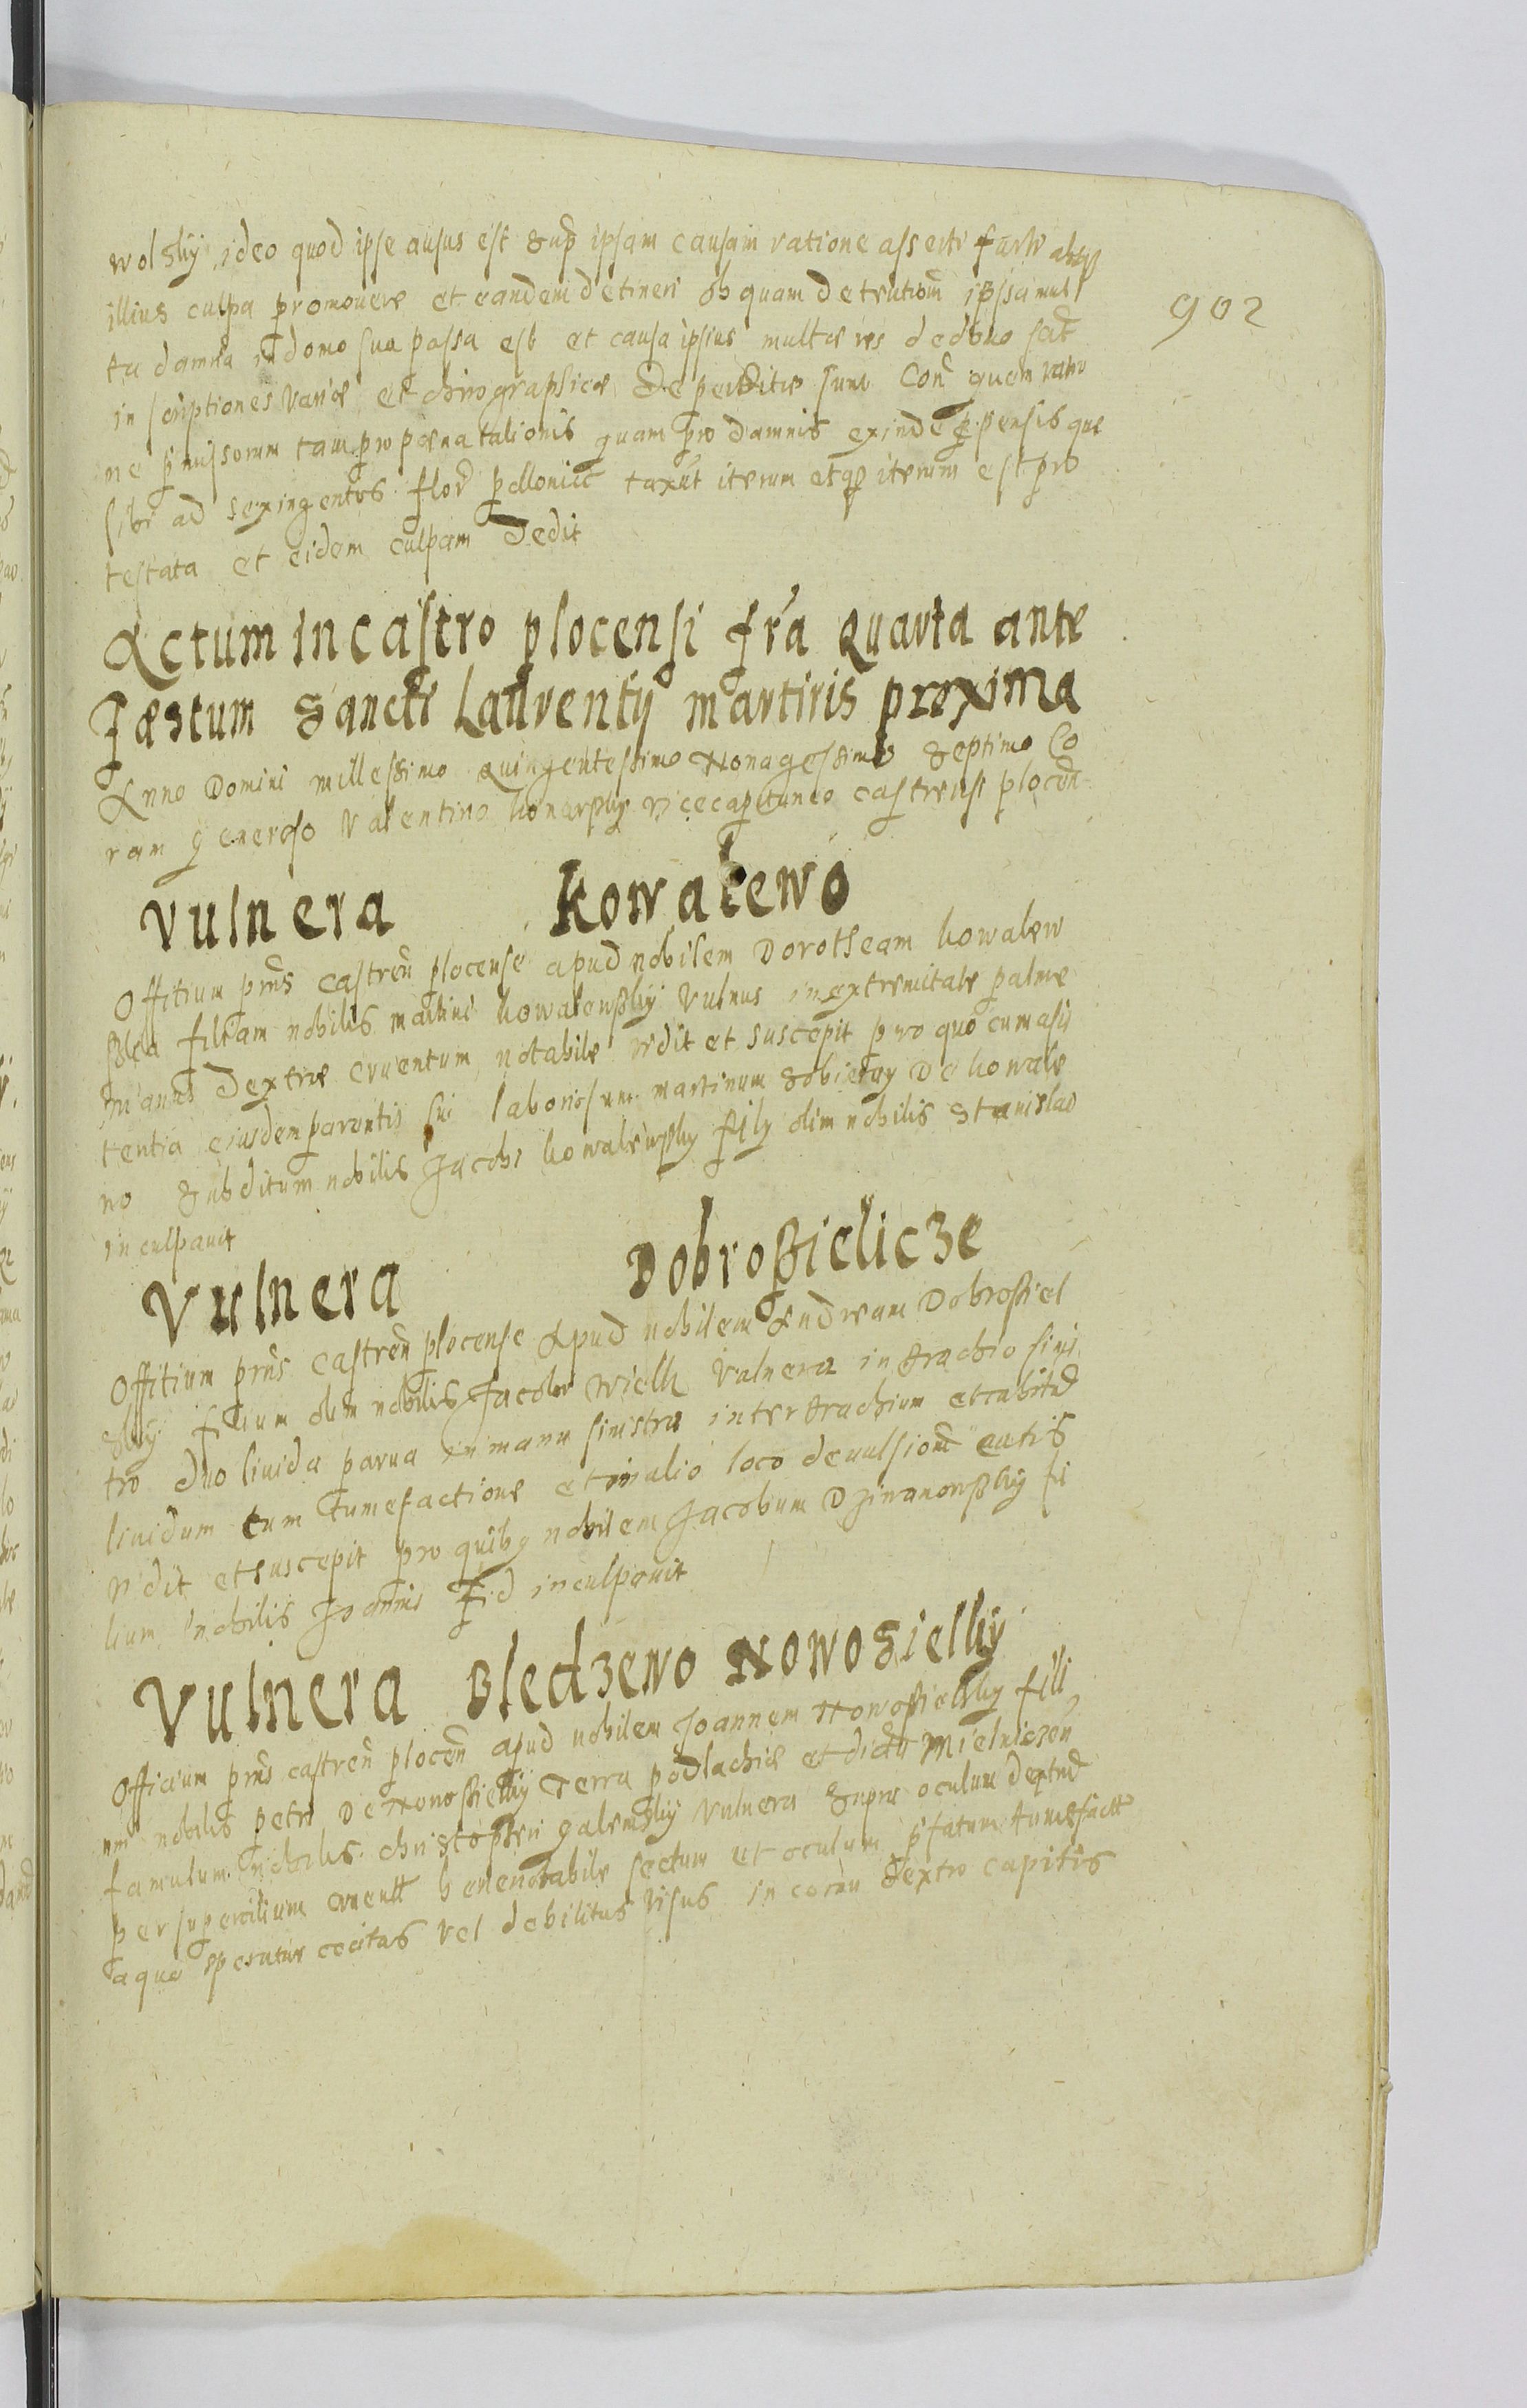 wolskÿ ideo quod ipse ausus est sup ipsam causam ratione asserti furti absq
illius culpa promouere et eandem detineri ob quam detention̄ ipsa mul
ta damna in domo sua passa est et causa ipsius multæ res de domo
902
in scriptiones variæ et chirographicæ deperditæ sunt Con̄ quem ratio
ne pmissorum tam pro pœna talionis quam pro damnis exinde pensis que
sibi ad sexingentos flor̄ pollonic̄ taxat̄ iterum atq iterum est pro
testata et eidem culpam dedit
Actum in castro plocensi fr̄a quarta ante
Fæstum Sancti Laurentÿ martiris proxima
Anno Domini millessimo quingentessimo Nonagessimo Septimo Co
ram generoso Valentino konarskÿ vicecapitaneo castrensi plocen̄
Vulnera Kowalewo
Offitium pn̄s castren̄ plocense apud nobilem Dorotheam kowalew
ska filiam nobilis martini kowalewskÿ vulnus in extremitate palme
manus dextræ cruentum notabile vidit et suscepit pro quo cum asis
tentia eiusdem parentis sui laboriosum martinum sobieray De kowale
wo subditum nobilis Jacobi kowalewsky fily olim nobilis stanislai
inculpauit
Vulnera Dobrosielicze
Offitium pn̄s castren̄ plocense Apud nobilem Andream Dobrosiel
skÿ filium olim nobilis Jacobi wielk vulnera in brachio sinis
tro duo liuida parua in manu sinistra inter brachium et cubitū
liuidum cum tumefactione et in alio loco deuulsion̄ cutis
vidit et suscepit pro quibq nobilem Jacobum Dziwanowskÿ fi
lium nobilis Joannis Fid inculpauit
Vulnera Bledzewo Nowosielky
Officium pn̄s castren̄ plocen̄ apud nobilem Joannem Nowosielsky filii
um nobilis petri De Nowosielky terra podlachiæ et dictū Mielniczen̄
famulum nobilis christopheri galemskÿ vulnera supra oculum dextrū
per supercilium cruentū benenotabile sectum et oculum pfatum tumefactū
a quo speratur cecitas vel debilitas visus in cornu dextro capitis